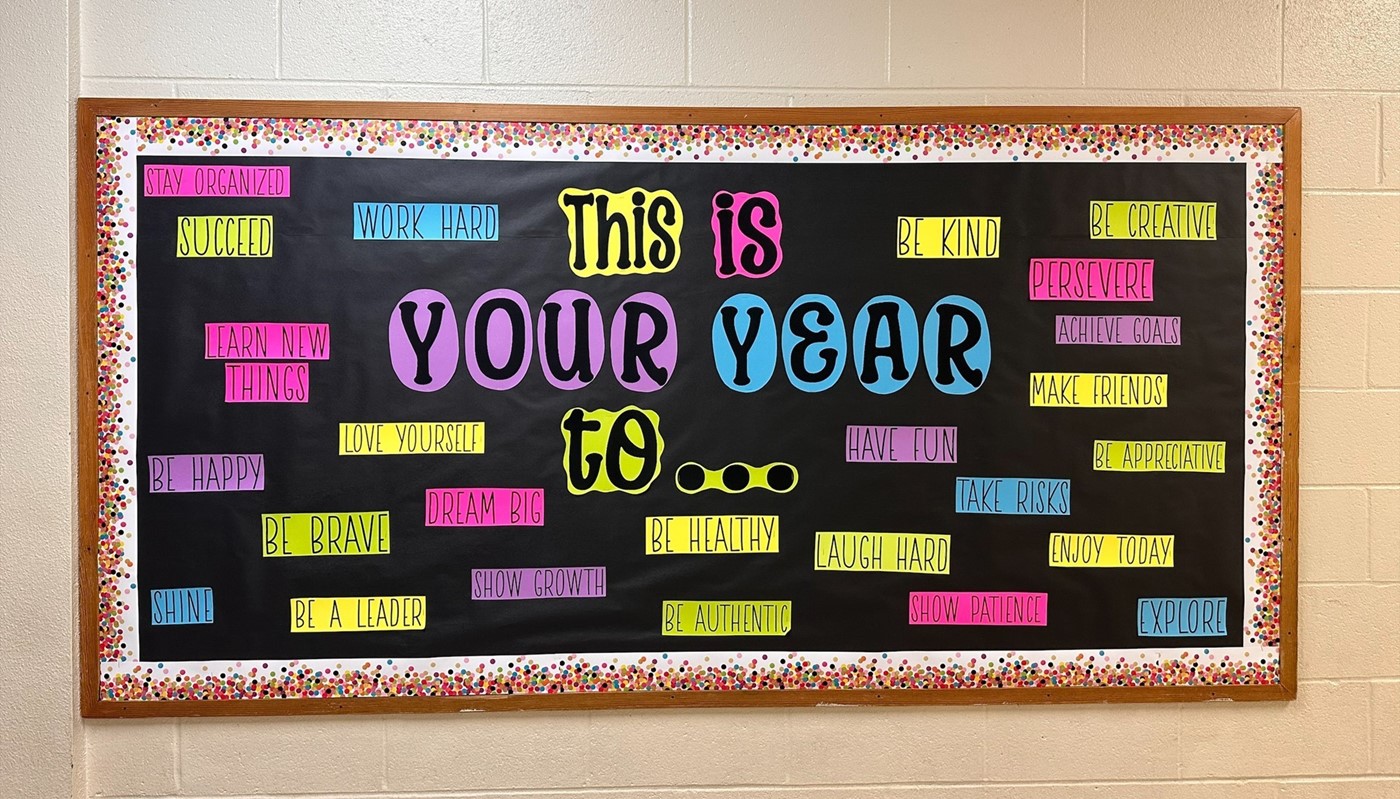 This is
YOUR YEAR
to...
STAY ORGANIZED
SUCCEED
WORK HARD
LEARN NEW
THINGS
LOVE YOURSELF
BE HAPPY
DREAM BIG
BE BRAVE
SHOW GROWTH
SHINE
BE A LEADER
BE KIND
BE CREATIVE
PERSEVERE
ACHIEVE GOALS
MAKE FRIENDS
HAVE FUN
BE APPRECIATIVE
TAKE RISKS
BE HEALTHY
LAUGH HARD
ENJOY TODAY
BE AUTHENTIC
SHOW PATIENCE
EXPLORE